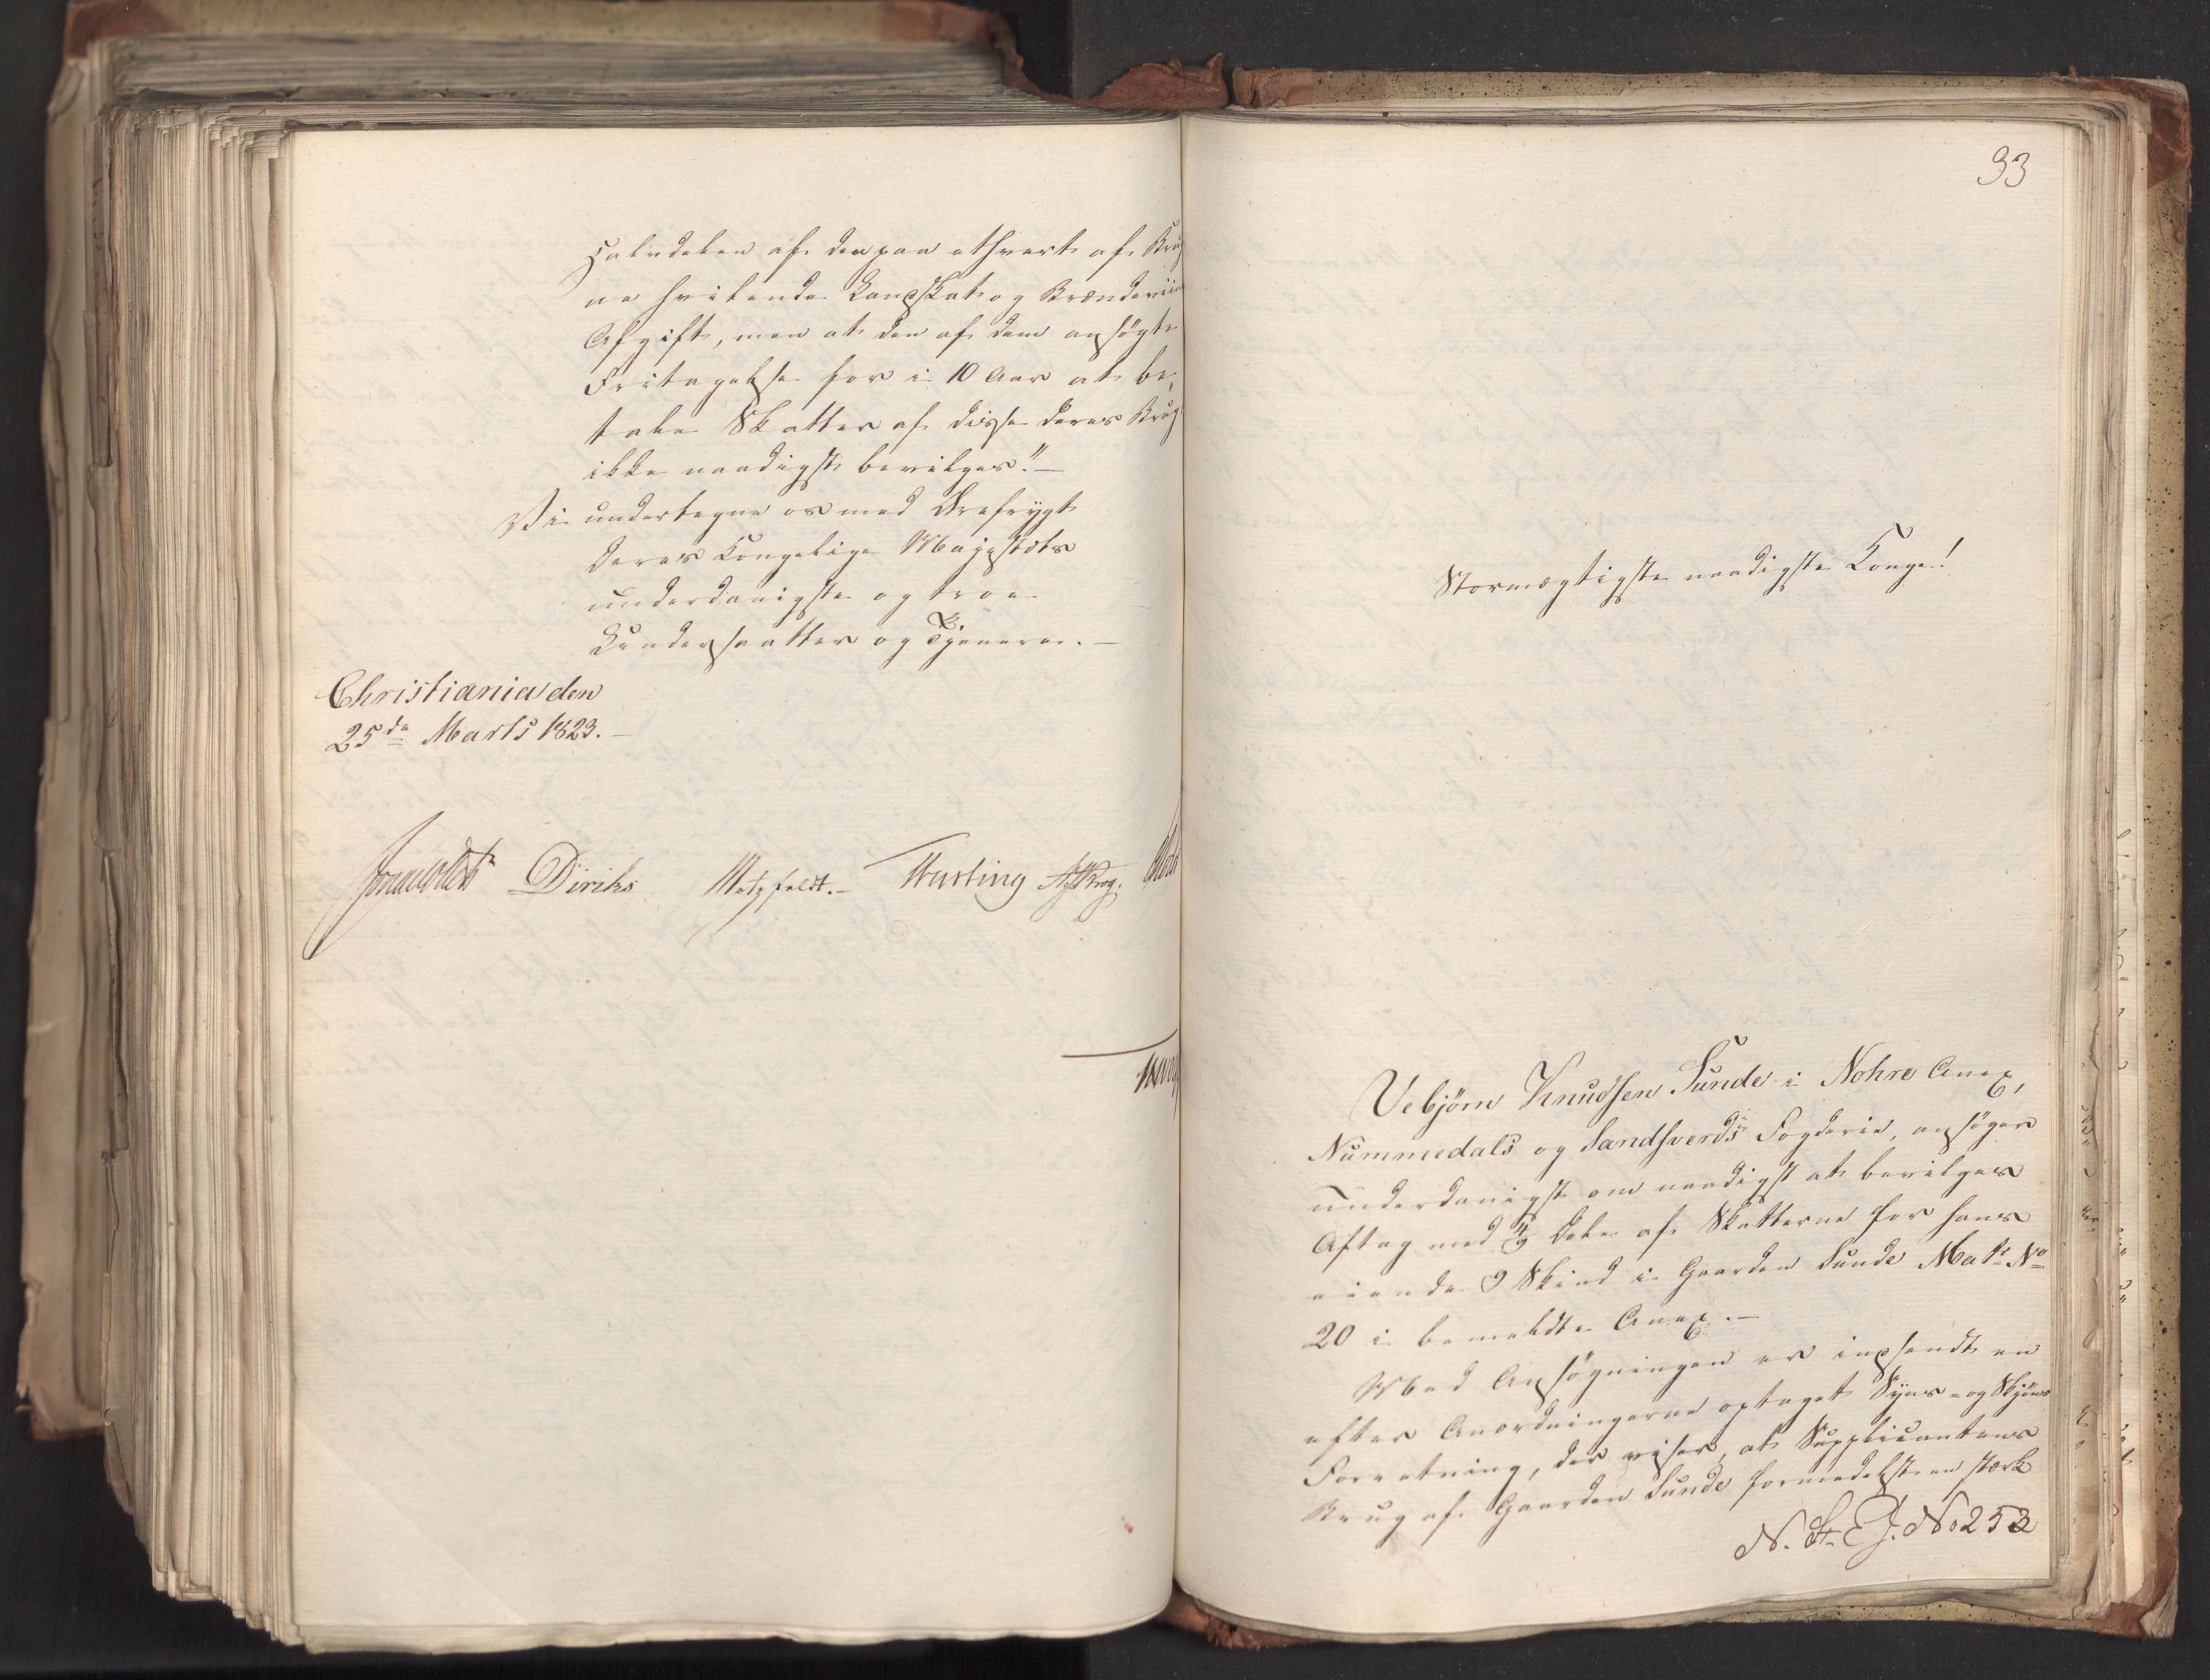 Halvdelen af den paa ethvert af Brug
ne hvilende Landskat og Brænderiie
Afgift, men at den af dem ansøgte
Fritagelse for i 10 Aar at be„
tale Skatter af disse deres Brug
ikke naadigst bevilges."—
Vi undertegne os med Ærefrygt
Deres Kongelige Majestæts
underdanigste og troe
Undersaatter og Tjenere.—
Christiania den
25de Marts 1823.—
Diriks Motzfeldt.— Krog.
93
Stormægtigste naadigste Konge!
Vebjörn Knudsen Sunde i Nohre Anex,
Nummedals og Sandsverds Fogderie, ansøger
underdanigst om naadigst at bevilges
Aftag med Dele af Skatterne for hans
eiende 9 Skind i Gaarden Sunde Matr No
20 i bemeldte Anex.—
Med Ansøgningen er indsendt en
efter Anordningerne optaget Syns- og Skjøns
Forretning, der viser, at Supplicantens
Brug af Gaarden Sunde formedelst en stærk
N. St. E. J. No 253